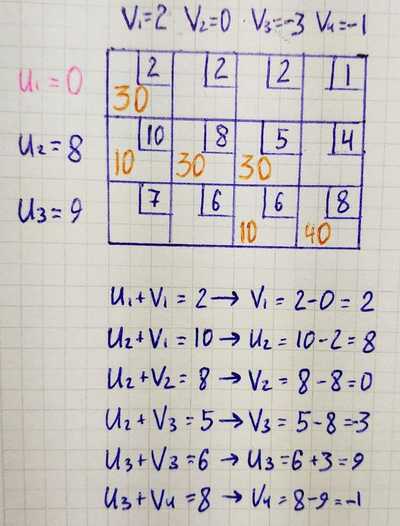 V₁=2 V₂=0 V₃=-3 V₄=-1
U₁=0 2 2 2 1
30
U₂=8 10 8 5 4
10 30 30
U₃=9 7 6 6 8
10 40
U₁+V₁=2→V₁=2-0=2
U₂+V₁=10→U₂=10-2=8
U₂+V₂=8→V₂=8-8=0
U₂+V₃=5→V₃=5-8=-3
U₃+V₃=6→U₃=6+3=9
U₃+V₄=8→V₄=8-9=-1